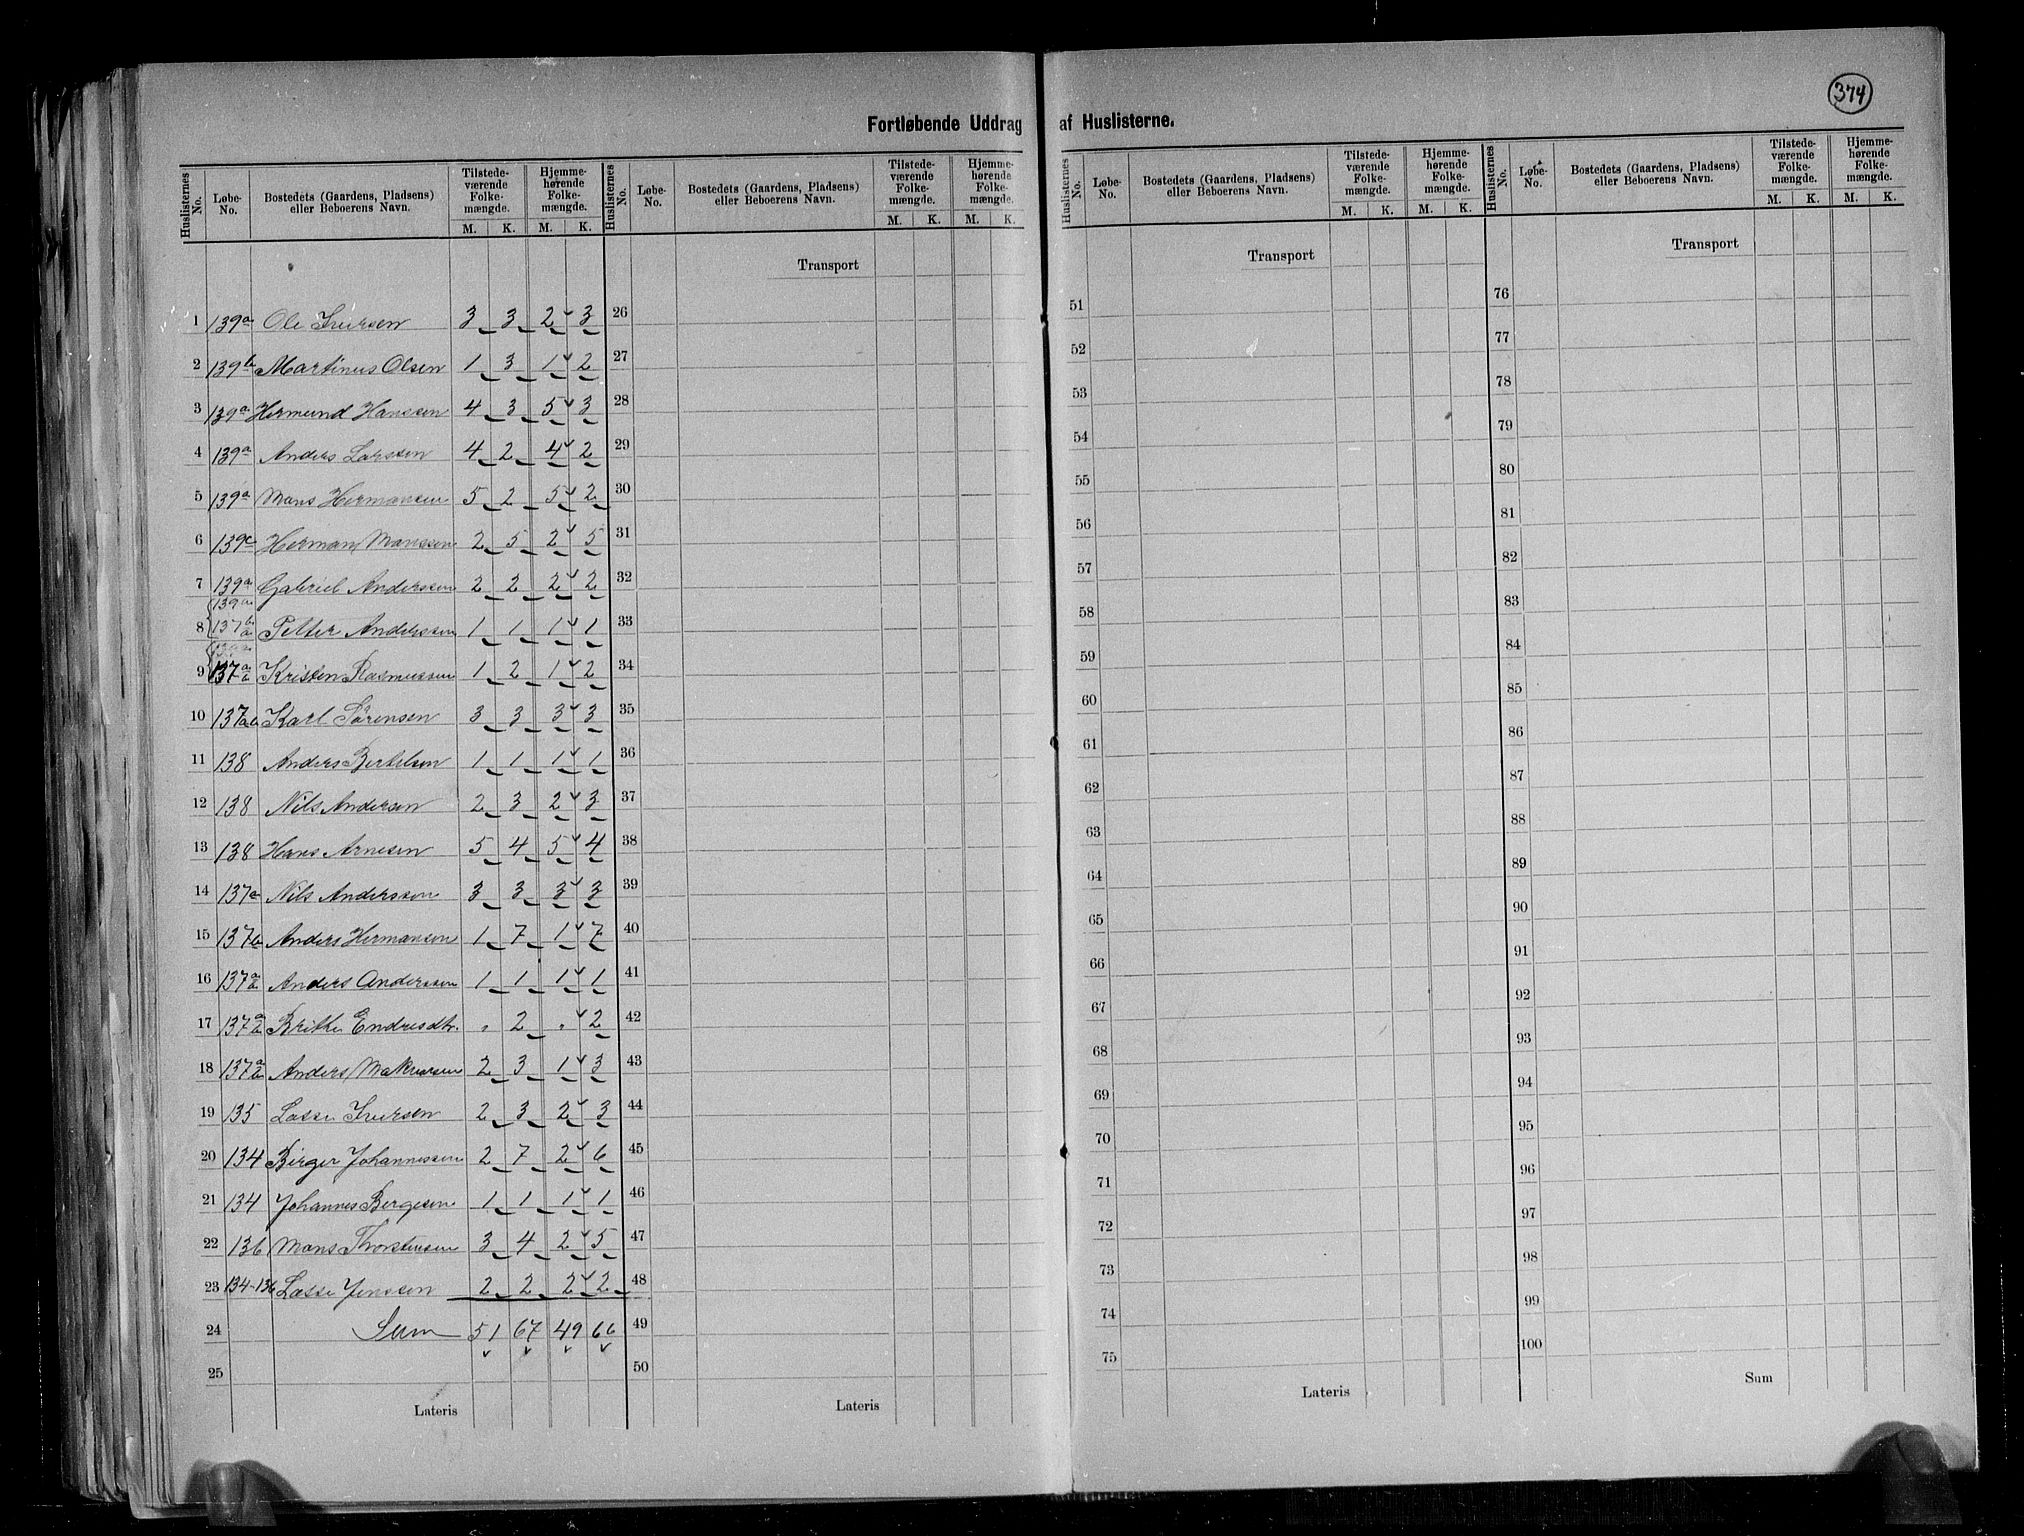 374
Fortløbende Uddrag af Huslisterne.
Huslisternes No. Løbe-No. Bostedets (Gaardens, Pladsens) eller Beboerens Navn. Tilstede-værende Folke-mængde. M. K. Hjemme-hørende Folke-mængde. M. K.
Huslisternes No. Løbe-No. Bostedets (Gaardens, Pladsens) eller Beboerens Navn. Tilstede-værende Folke-mængde. M. K. Hjemme-hørende Folke-mængde. M. K.
Huslisternes No. Løbe-No. Bostedets (Gaardens, Pladsens) eller Beboerens Navn. Tilstede-værende Folke-mængde. M. K. Hjemme-hørende Folke-mængde. M. K.
Huslisternes No. Løbe-No. Bostedets (Gaardens, Pladsens) eller Beboerens Navn. Tilstede-værende Folke-mængde. M. K. Hjemme-hørende Folke-mængde. M. K.
Transport Transport Transport
1 139a Ole Iversen 3 3 2 3 26 51 76
2 139b Martinus Olsen 1 3 1 2 27 52 77
3 139a Hermund Hanssen 4 3 5 3 28 53 78
4 139a Anders Larssen 4 2 4 2 29 54 79
5 139a Mons Hermansen 5 2 5 2 30 55 80
6 139c Herman Monssen 2 5 2 5 31 56 81
7 139a Gabriel Anderssen 2 2 2 2 32 57 82
8 Petter Anderssen 1 1 1 1 33 58 83
9 137 Kristen Rasmussen 1 2 1 2 34 59 84
10 137 Karl Sörensen 3 3 3 3 35 60 85
11 138 Anders Bertelsen 1 1 1 1 36 61 86
12 138 Nils Andersen 2 3 2 3 37 62 87
13 138 Hans Arnesen 5 4 5 4 38 63 88
14 137a Nils Anderssen 3 3 3 3 39 64 89
15 137b Anders Hermansen 1 7 1 7 40 65 90
16 137 Anders Anderssen 1 1 1 1 41 66 91
17 137 Brithe Endresdtr. " 2 " 2 42 67 92
18 137 Anders 2 3 1 3 43 68 93
19 135 Lasse Iversen 2 3 2 3 44 69 94
20 134 Birger Johannessen 2 7 2 6 45 70 95
21 134 Johannes Bergesen 1 1 1 1 46 71 96
22 136 Mons Thorstensen 3 4 2 5 47 72 97
23 134-136 Lasse Jenssen 2 2 2 2 48 73 98
24 Sum 51 67 49 66 49 74 99
25 50 75 100
Lateris Lateris Lateris Sum